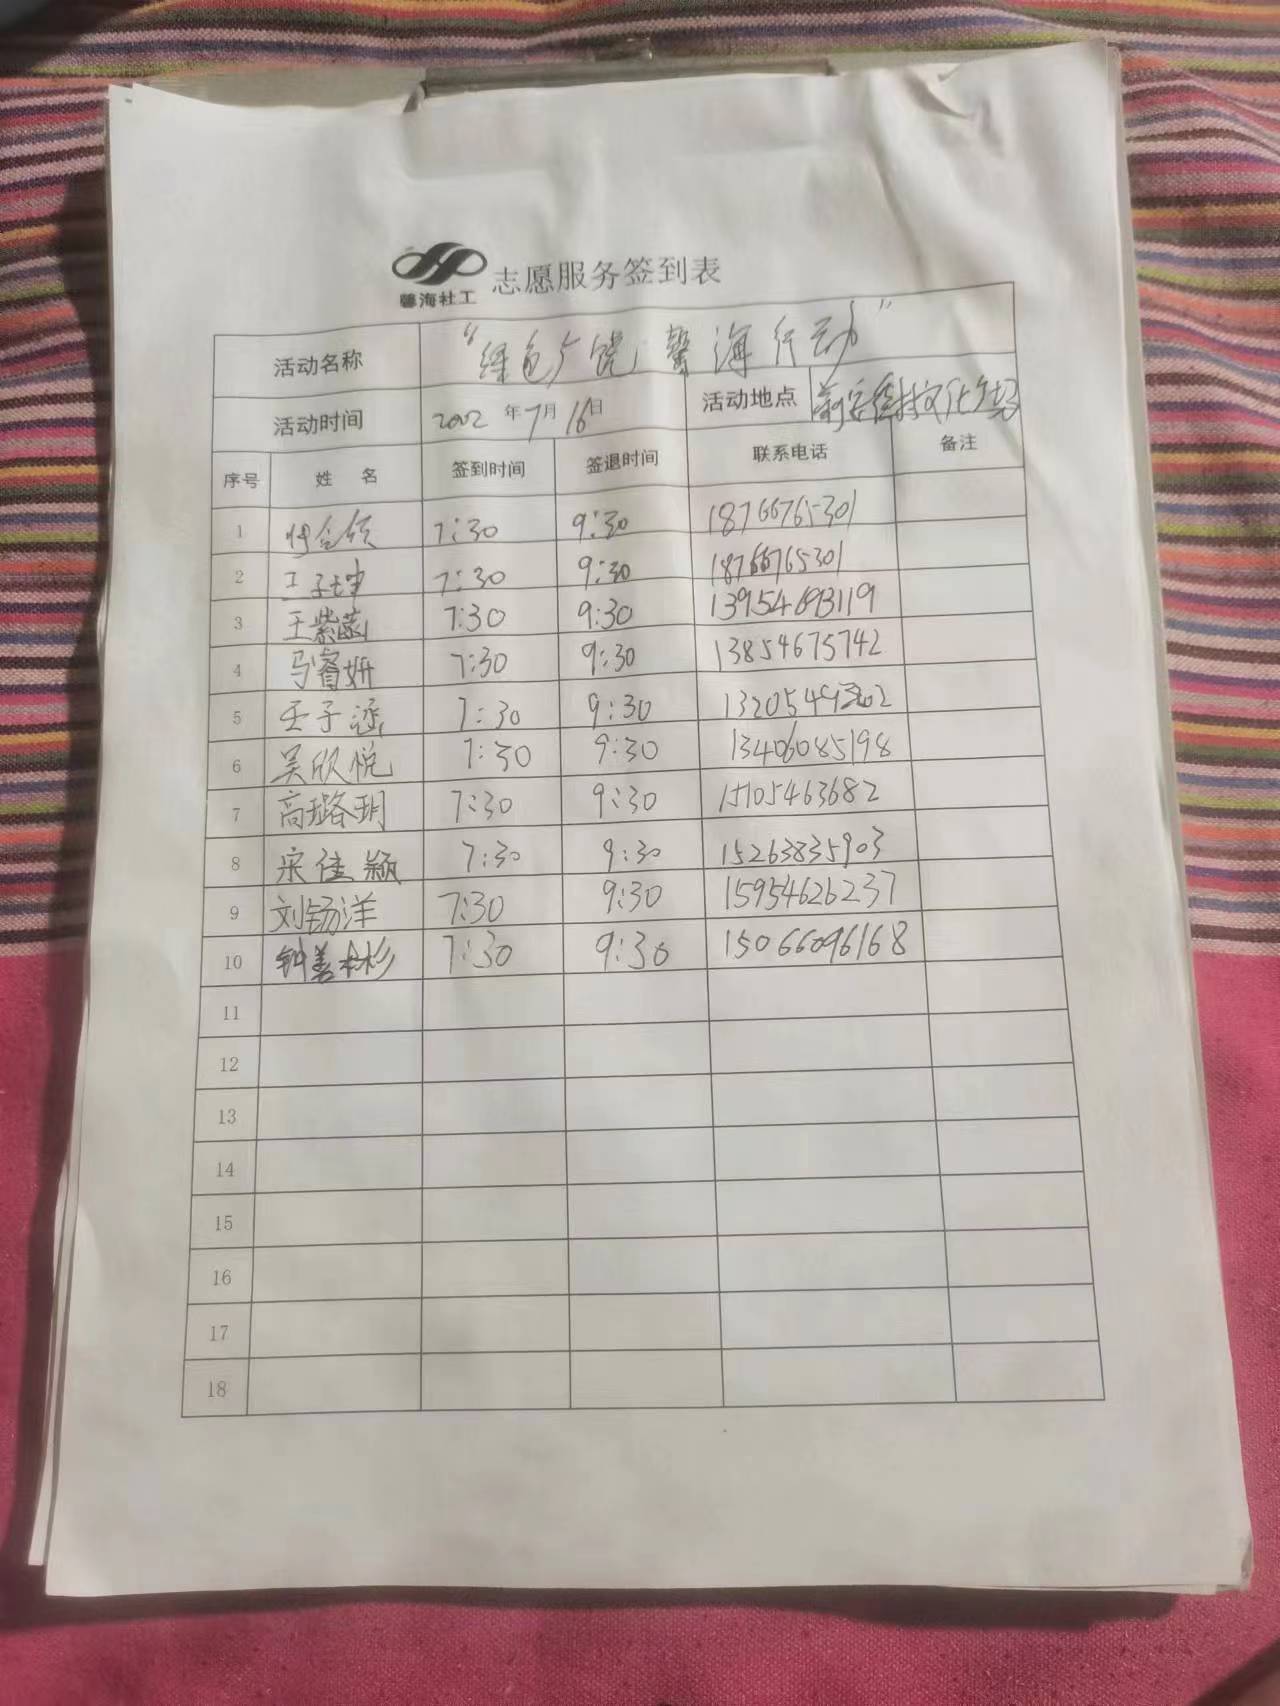 馨海社工 志愿服务签到表
活动名称 “绿色广饶，馨海行动”
活动时间 2002年7月16日 活动地点 村文化广场
序号 姓 名 签到时间 签退时间 联系电话 备注
1 7:30 9:30 18766765301
2 王子坤 7:30 9:30 18766765301
3 王紫菡 7:30 9:30 13954693119
4 马睿妍 7:30 9:30 13854675742
5 王子涵 7:30 9:30
6 吴欣悦 7:30 9:30 13406085198
7 高璐玥 7:30 9:30 15105463682
8 宋佳颖 7:30 9:30 15263835903
9 刘钖洋 7:30 9:30 15954626237
10 钟美杉 7:30 9:30 15066096168
11
12
13
14
15
16
17
18